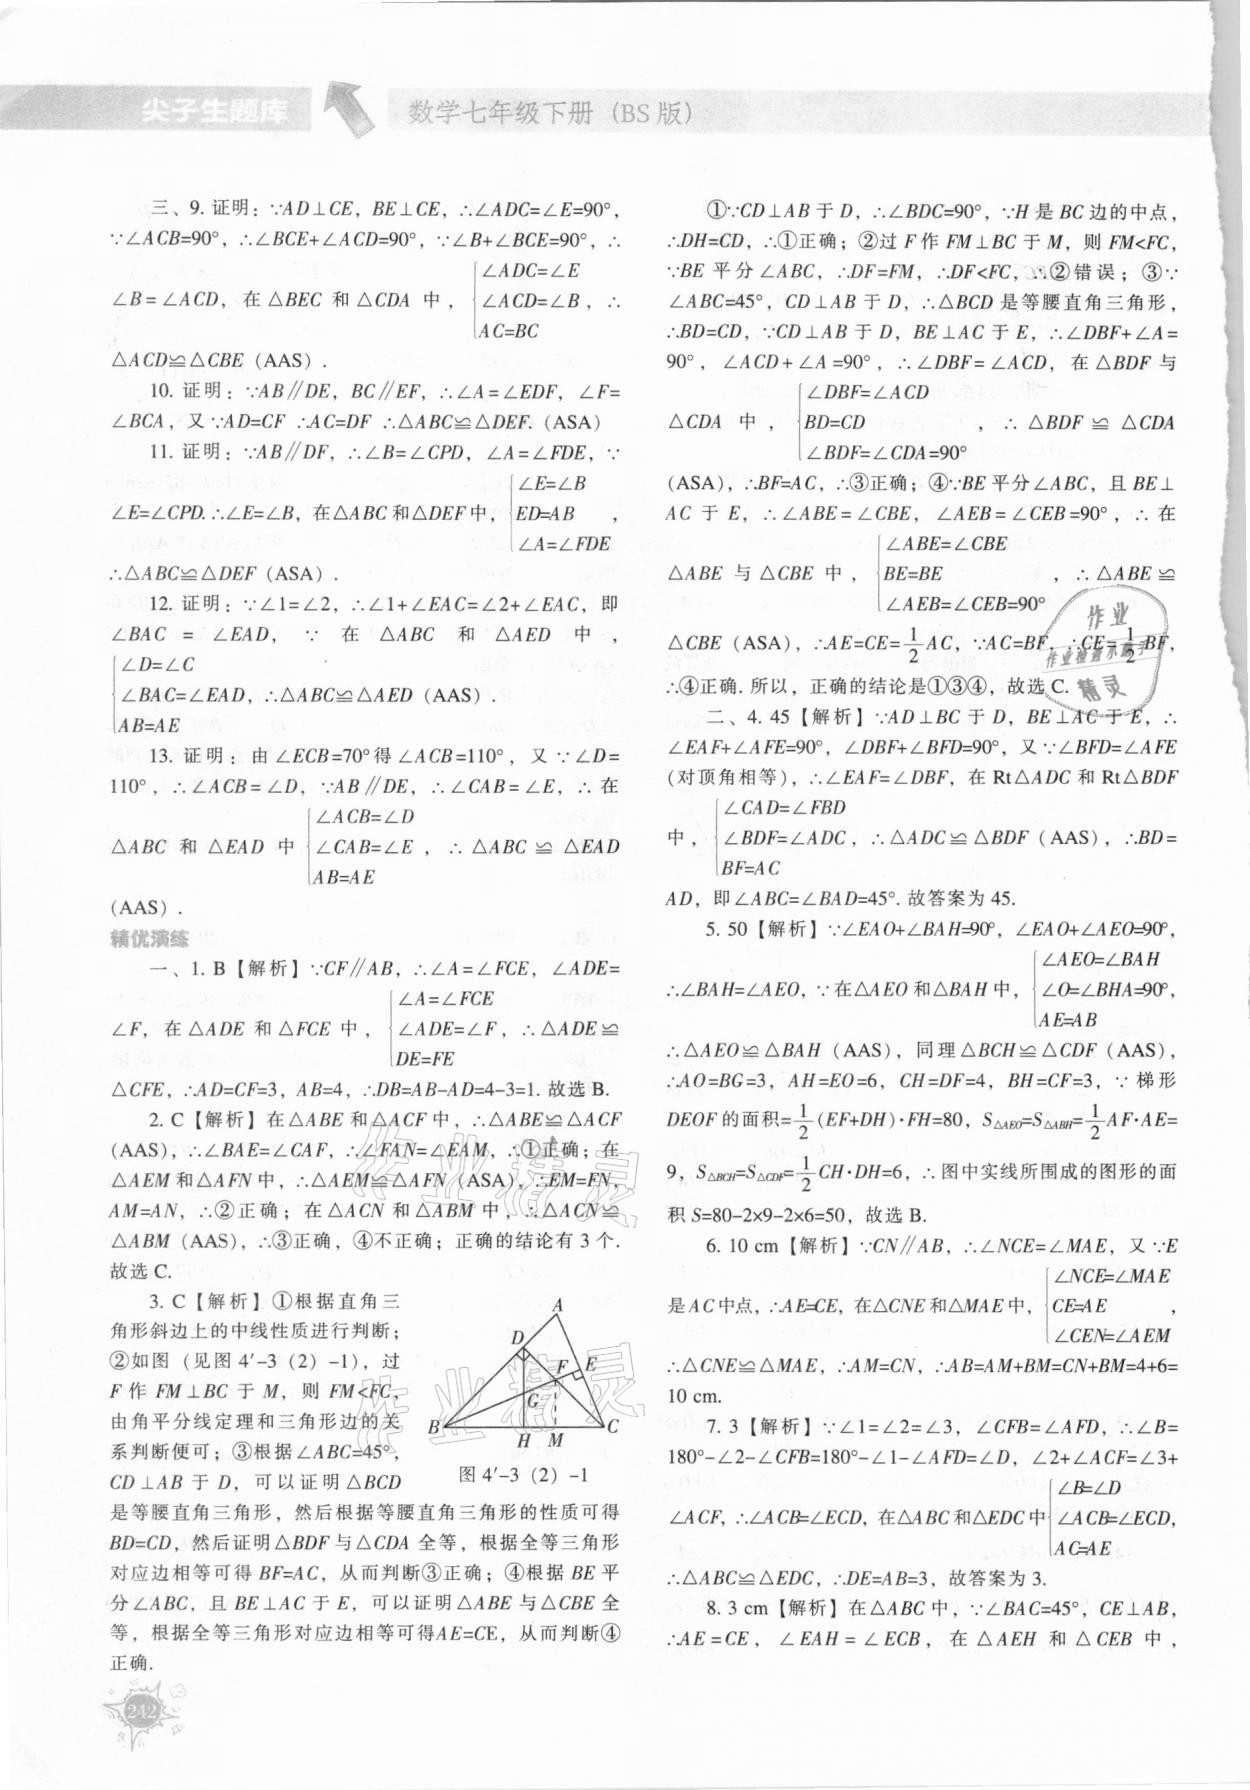 尖子生题库
数学七年级下册（BS版）
三、9. 证明：∵AD⊥CE，BE⊥CE，∴∠ADC=∠E=90°，
∵∠ACB=90°，∴∠BCE+∠ACD=90°，∵∠B+∠BCE=90°，∴
∠B=∠ACD，在△BEC和△CDA中，{∠ADC=∠E
∠ACD=∠B，∴
AC=BC
△ACD≌△CBE（AAS）.
10. 证明：∵AB∥DE，BC∥EF，∴∠A=∠EDF，∠F=
∠BCA，又∵AD=CF ∴AC=DF ∴△ABC≌△DEF.（ASA）
11. 证明：∵AB∥DF，∴∠B=∠CPD，∠A=∠FDE，∵
∠E=∠CPD.∴∠E=∠B，在△ABC和△DEF中，{∠E=∠B
ED=AB，
∠A=∠FDE
∴△ABC≌△DEF（ASA）.
12. 证明：∵∠1=∠2，∴∠1+∠EAC=∠2+∠EAC，即
∠BAC=∠EAD，∵在△ABC和△AED中，
{∠D=∠C
∠BAC=∠EAD，∴△ABC≌△AED（AAS）.
AB=AE
13. 证明：由∠ECB=70°得∠ACB=110°，又∵∠D=
110°，∴∠ACB=∠D，∵AB∥DE，∴∠CAB=∠E，∴在
△ABC和△EAD中{∠ACB=∠D
∠CAB=∠E，∴△ABC≌△EAD
AB=AE
（AAS）.
精优演练
一、1. B【解析】∵CF∥AB，∴∠A=∠FCE，∠ADE=
∠F，在△ADE和△FCE中，{∠A=∠FCE
∠ADE=∠F，∴△ADE≌
DE=FE
△CFE，∴AD=CF=3，AB=4，∴DB=AB-AD=4-3=1. 故选B.
2. C【解析】在△ABE和△ACF中，∴△ABE≌△ACF
(AAS)，∴∠BAE=∠CAF，∴∠FAN=∠EAM，∴①正确；在
△AEM和△AFN中，∴△AEM≌△AFN（ASA），∴EM=FN，
AM=AN，∴②正确；在△ACN和△ABM中，∴△ACN≌
△ABM（AAS），∴③正确，④不正确；正确的结论有3个.
故选C.
3. C【解析】①根据直角三
角形斜边上的中线性质进行判断；
②如图（见图4′-3（2）-1），过
F作FM⊥BC于M，则FM<FC，
由角平分线定理和三角形边的关
系判断便可；③根据∠ABC=45°，
CD⊥AB于D，可以证明△BCD
A
D
F
E
G
B
H
M
C
图4′-3（2）-1
是等腰直角三角形，然后根据等腰直角三角形的性质可得
BD=CD，然后证明△BDF与△CDA全等，根据全等三角形
对应边相等可得BF=AC，从而判断③正确；④根据BE平
分∠ABC，且BE⊥AC于E，可以证明△ABE与△CBE全
等，根据全等三角形对应边相等可得AE=CE，从而判断④
正确.
①∵CD⊥AB于D，∴∠BDC=90°，∵H是BC边的中点，
∴DH=CD，∴①正确；②过F作FM⊥BC于M，则FM<FC，
∵BE平分∠ABC，∴DF=FM，∴DF<FC，∴②错误；③∵
∠ABC=45°，CD⊥AB于D，∴△BCD是等腰直角三角形，
∴BD=CD，∵CD⊥AB于D，BE⊥AC于E，∴∠DBF+∠A=
90°，∠ACD+∠A=90°，∴∠DBF=∠ACD，在△BDF与
△CDA中，{∠DBF=∠ACD
BD=CD，∴△BDF≌△CDA
∠BDF=∠CDA=90°
(ASA)，∴BF=AC，∴③正确；④∵BE平分∠ABC，且BE⊥
AC于E，∴∠ABE=∠CBE，∠AEB=∠CEB=90°，∴在
△ABE与△CBE中，{∠ABE=∠CBE
BE=BE，∴△ABE≌
∠AEB=∠CEB=90°
△CBE（ASA），∴AE=CE=1/2AC，∵AC=BF，∴CE=1/2BF，
∴④正确. 所以，正确的结论是①③④，故选C.
二、4. 45【解析】∵AD⊥BC于D，BE⊥AC于E，∴
∠EAF+∠AFE=90°，∠DBF+∠BFD=90°，又∵∠BFD=∠AFE
(对顶角相等)，∴∠EAF=∠DBF，在Rt△ADC和Rt△BDF
中，{∠CAD=∠FBD
∠BDF=∠ADC，∴△ADC≌△BDF（AAS），∴BD=
BF=AC
AD，即∠ABC=∠BAD=45°. 故答案为45.
5. 50【解析】∵∠EAO+∠BAH=90°，∠EAO+∠AEO=90°，
∴∠BAH=∠AEO，∵在△AEO和△BAH中，{∠AEO=∠BAH
∠O=∠BHA=90°，
AE=AB
∴△AEO≌△BAH（AAS），同理△BCH≌△CDF（AAS），
∴AO=BG=3，AH=EO=6，CH=DF=4，BH=CF=3，∵梯形
DEOF的面积=1/2(EF+DH)·FH=80，S△AEO=S△ABH=1/2AF·AE=
9，S△BCH=S△CDF=1/2CH·DH=6，∴图中实线所围成的图形的面
积S=80-2×9-2×6=50，故选B.
6. 10 cm【解析】∵CN∥AB，∴∠NCE=∠MAE，又∵E
是AC中点，∴AE=CE，在△CNE和△MAE中，{∠NCE=∠MAE
CE=AE，
∠CEN=∠AEM
∴△CNE≌△MAE，∴AM=CN，∴AB=AM+BM=CN+BM=4+6=
10 cm.
7. 3【解析】∵∠1=∠2=∠3，∠CFB=∠AFD，∴∠B=
180°-∠2-∠CFB=180°-∠1-∠AFD=∠D，∠2+∠ACF=∠3+
∠ACF，∴∠ACB=∠ECD，在△ABC和△EDC中{∠B=∠D
∠ACB=∠ECD，
AC=AE
∴△ABC≌△EDC，∴DE=AB=3，故答案为3.
8. 3 cm【解析】在△ABC中，∵∠BAC=45°，CE⊥AB，
∴AE=CE，∠EAH=∠ECB，在△AEH和△CEB中，
242
作业
作业检查小助手
精灵
作业精灵
作业精灵